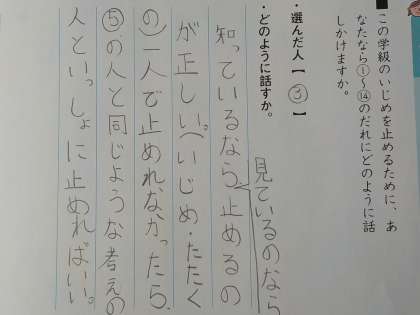 ■この学級のいじめを止めるために、あ
なたなら①〜⑭のだれにどのように話
しかけますか。
・選んだ人【 ③ 】
・どのように話すか。
見ているのなら
知っているなら止めるの
が正しい。(いじめ・たたく
の)一人で止めれなかったら、
⑤の人と同じような考えの
人といっしょに止めればいい。